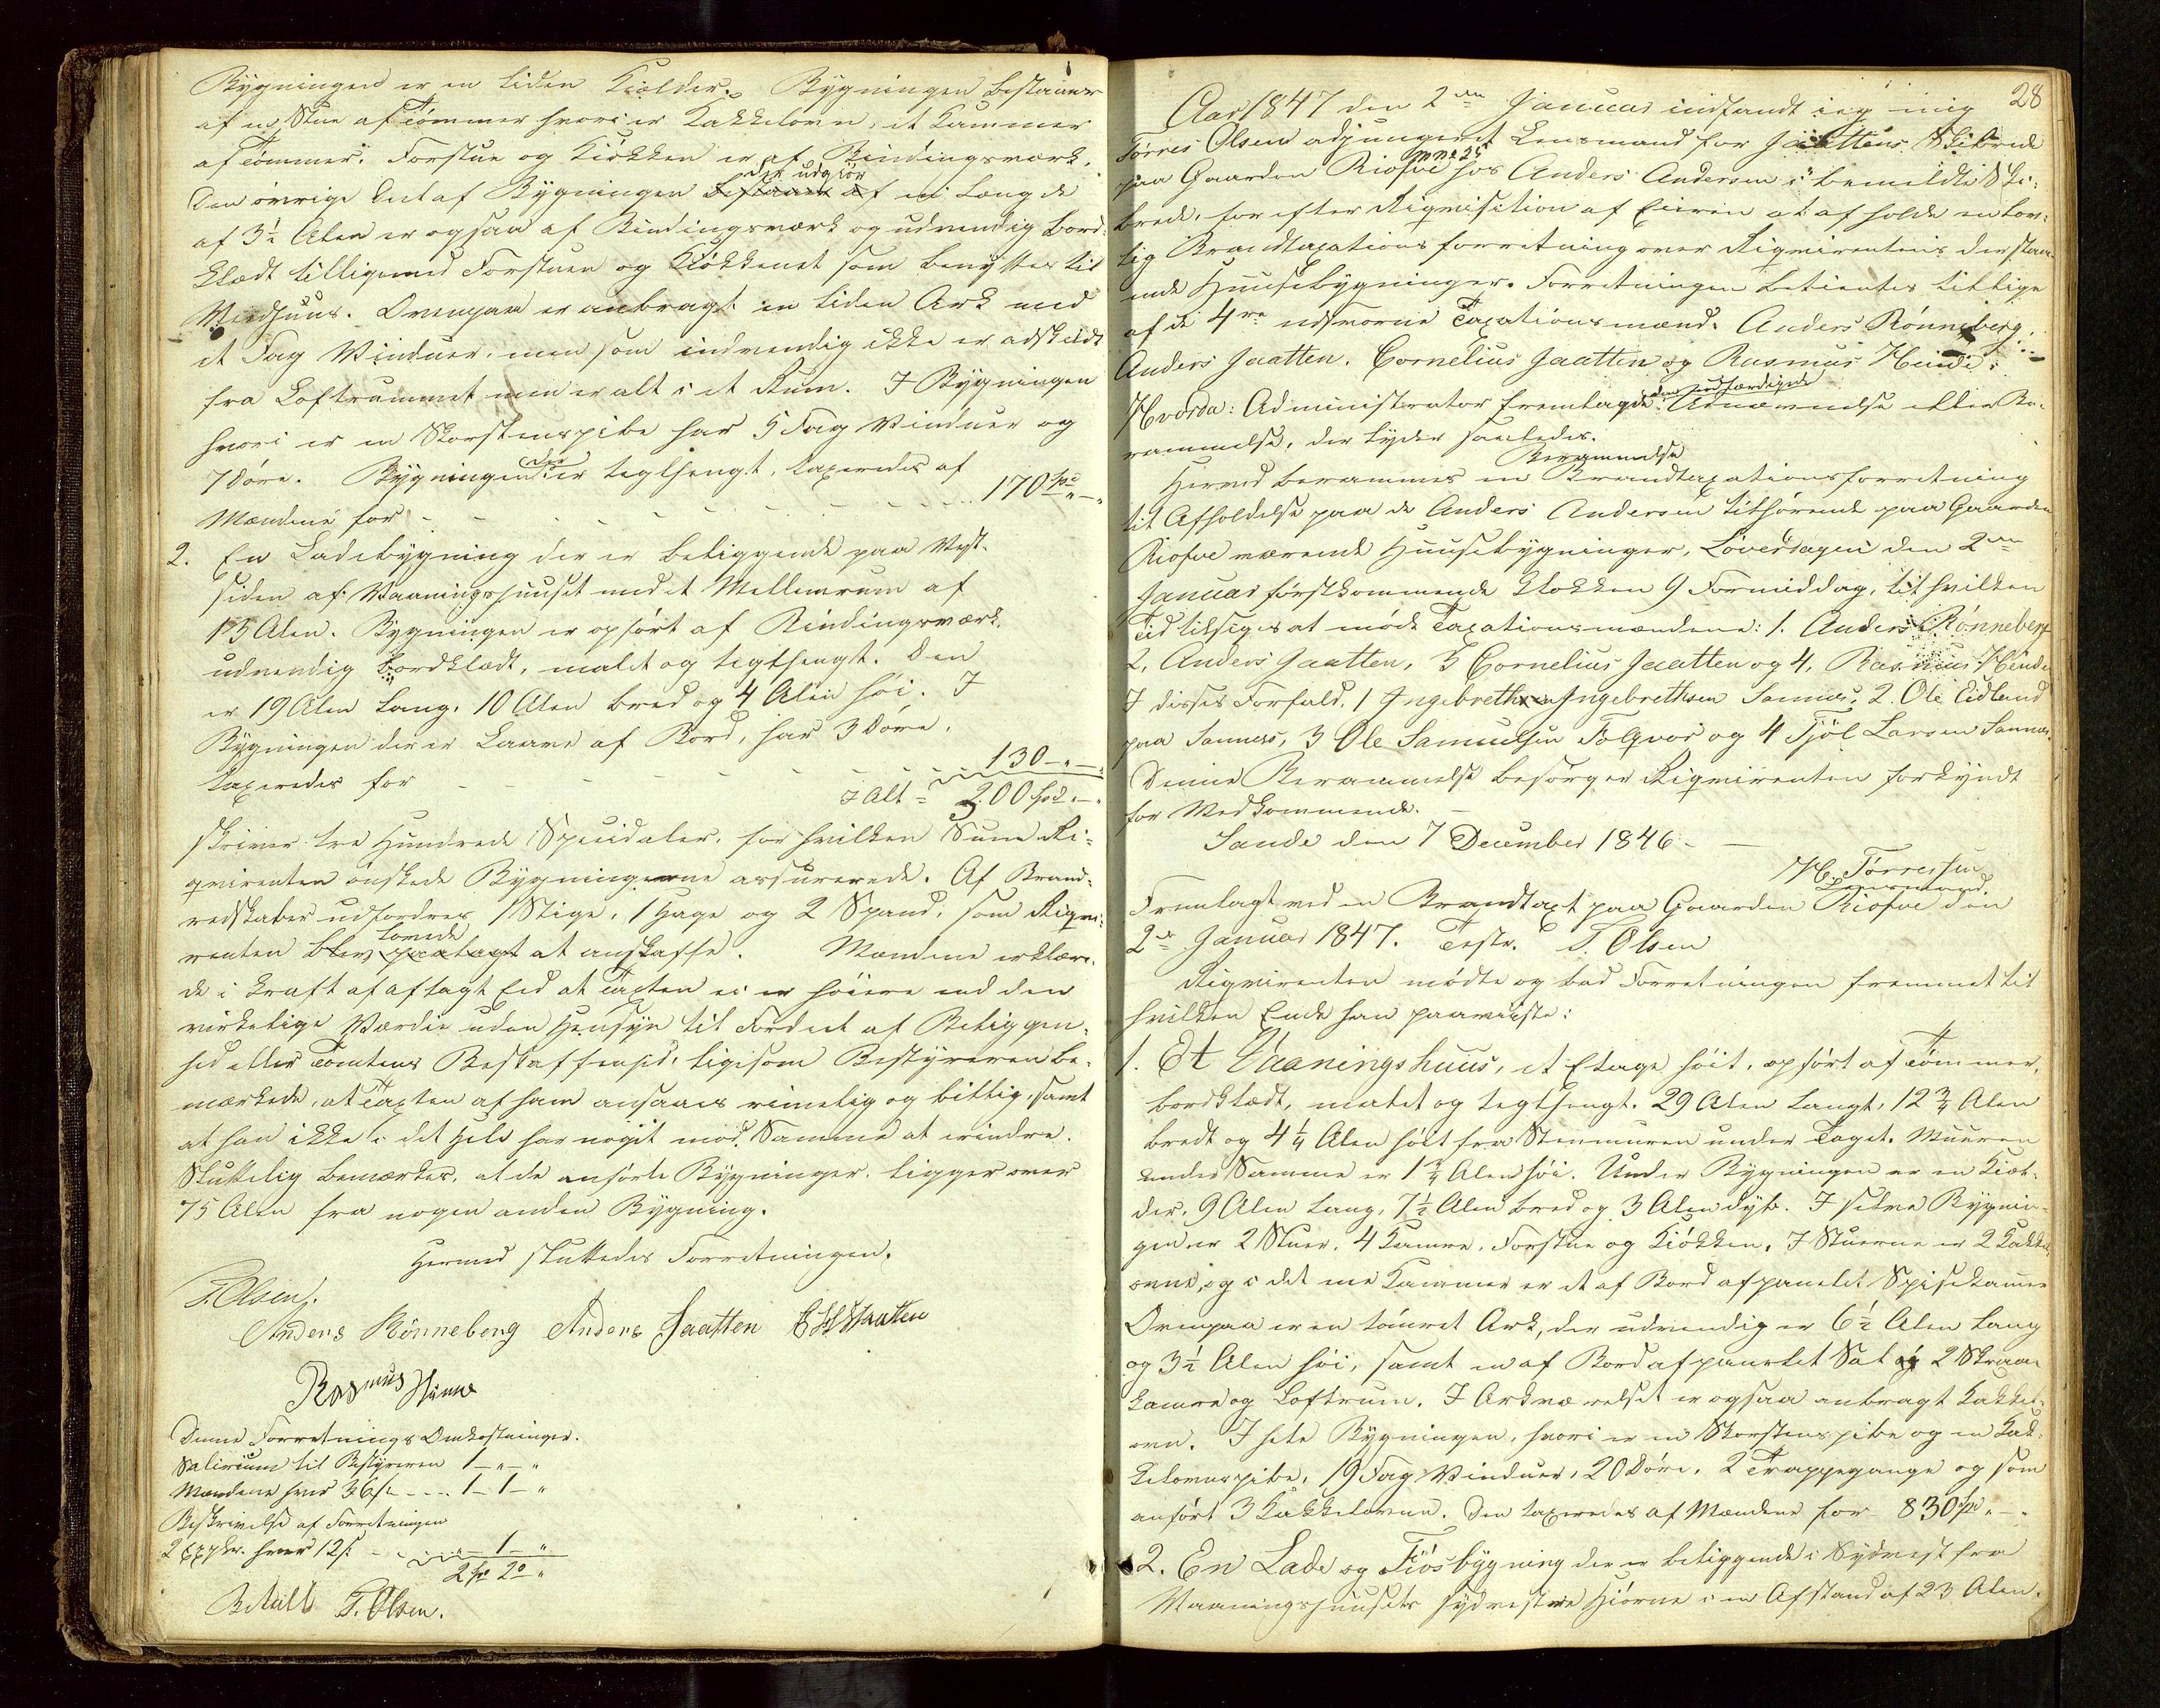 Bygningen er en liden Kjelder. Bygningen bestaaer
af en Stue af Tømmer hvori er Kakkelovn, et Kammer
af Tømmer. Forstue og Kiøkken er af Bindingsværk.
det udgiör
Den øvrige Deel af Bygningen bestaaer af en Længde
af 3½ Alen er ogsaa af Bindingsværk og udvendig bord-
klædt tilligemed Forstuen og Kiøkkenet som benyttes til
Vedhuus. Ovenpaa er anbragt en liden Ark med
et Fag Vinduer, men som indvendig ikke er adskeldt
fra Loftrummet men er alt i et Rum. I Bygningen
hvori er en Skorstenspibe har 5 Fag Vinduer og
7 Døre. Bygningen der er teglhengt, taxeredes af
Mændene for - - - - - 170 Spd " - "
2. En Ladebygning der er beliggende paa Vest-
siden af Vaaningshuuset med et Mellemrum af
15 Alen. Bygningen er opført af Bindingsværk,
udvendig bordklædt, malet og teglhengt. Den
er 19 Alen lang, 10 Alen bred og 4 Alen høi. I
Bygningen der er Laave af Bord, har 3 Døre,
taxeredes for - - - - - 130 - " - "
I Alt = 300 Spd " - "
skriver tre Hundrede Speciedaler, for hvilken Sum Re-
qvirenten ønskede Bygningerne assurerede. Af Brand-
redskaber udfordres 1 Stige, 1 Hage og 2 Spand, som Reqvi-
lovede
renten blev paalagt at anskaffe. Mændene erklære-
de i Kraft af aflagt Eed at Taxten ei er høiere end den
virkelige Værdie uden Hensyn til Fordeel af Beliggen-
hed eller Tomtens Beskaffenhed, ligesom Bestyreren be-
mærkede, at Taxten af ham ansaaes rimelig og billig, samt
at han ikke i det Hele har noget mod Samme at erindre.
Sluttelig bemærkes, at de anførte Bygninger ligger over
75 Alen fra nogen anden Bygning.
Hermed sluttedes Forretningen.
T. Olsen.
Anders Rønneberg Anders Jaatten Jaatten
Rasmus Hinne
Denne Forretnings Omkostninger.
Salirium til Bestyreren 1 - " - "
Mændene hver 36 s. - - - 1 - 1 - "
Beskrivelse af Forretningen
2 Expl. hver 12 s. - - " - 1 - "
2 Spd 2 o "
Betalt T. Olsen.
28
Aar 1847 den 2den Januar indfandt jeg mig
Tørres Olsen adjungeret Lensmand for Jaattens Skibrede
paa Gaarden Riofve mno 25 hos Anders Andersen i bemeldte Ski-
brede, for efter Reqvisition af Eieren at afholde en lov-
lig Brandtaxationsforretning over Reqvirentens derstaa-
ende Huusebygninger. Forretningen betientes tillige
af de 4re udsvorne Taxationsmænd: Anders Rønneberg,
Anders Jaatten, Cornelius Jaatten og Rasmus Heinde:
den udfærdigede
Hvorda: Administrator fremlagde Udnævnelse eller Be-
rammelse, der lyder saaledes.
Berammelse
Herved berammes en Brandtaxationsforretning
til Afholdelse paa de Anders Andersen tilhørende paa Gaarden
Riofve værende Huusebygninger, Løverdagen den 2den
Januar førstkommende Klokken 9 Formiddag, til hvilken
Tid tilsiges at møde Taxationsmændene: 1. Anders Rønneberg
2, Anders Jaatten, 3 Cornelius Jaatten og 4, Rasmus Heinde
I disses Forfald, 1 Ingebreth Ingebrethsen Sannes, 2. Ole Eidland
paa Sannes, 3 Ole Samuelsen Folqvor og 4 Tjöl Larsen Sannes.
Denne Berammelse besørger Reqvirenten forkyndt
for Vedkommende. -
Sande den 7 December 1846. -
H. Tørressen
Lensmand.
Fremlagt ved en Brandtaxt paa Gaarden Riofve den
2de Januar 1847. Testr. T. Olsen
Reqvirenten mødte og bad Forretningen fremmet til
hvilken Ende han paaviiste:
1. Et Vaaningshuus, et Etage høit, opført af Tømmer,
bordklædt, malet og teglhengt. 29 Alen langt, 12¾ Alen
bredt og 4¼ Alen høit fra Steenmuren under Taget. Muuren
under Samme er 1¾ Alen høi. Under Bygningen er en Kiel-
der, 9 Alen lang, 7½ Alen bred og 3 Alen dyb. I selve Bygnin-
gen er 2 Stuer, 4 Kamre, Forstue og Kiøkken. I Stuerne er 2 Kakkel-
ovne, og i det ene Kammer er et af Bord afpanelet Spisekamer
Ovenpaa er en tømret Ark, der udvendig er 6½ Alen lang
og 3½ Alen høi, samt en af Bord afpanelet Sal og 2 Skraa-
kamre og Loftrum. I Arkværelset er ogsaa anbragt Kakkel-
ovn. I hele Bygningen, hvori er en Skorstenspibe og en Kak-
kelovnspibe, 19 Fag Vinduer, 20 Døre, 2 Trappegange og som
anført 3 Kakkelovne. Den taxeredes af Mændene for - 830 Spd " - "
2. En Lade og Fiösbygning der er beliggende i Sydvest fra
Vaaningshuusets sydvestre Hiørne i en Afstand af 23 Alen.